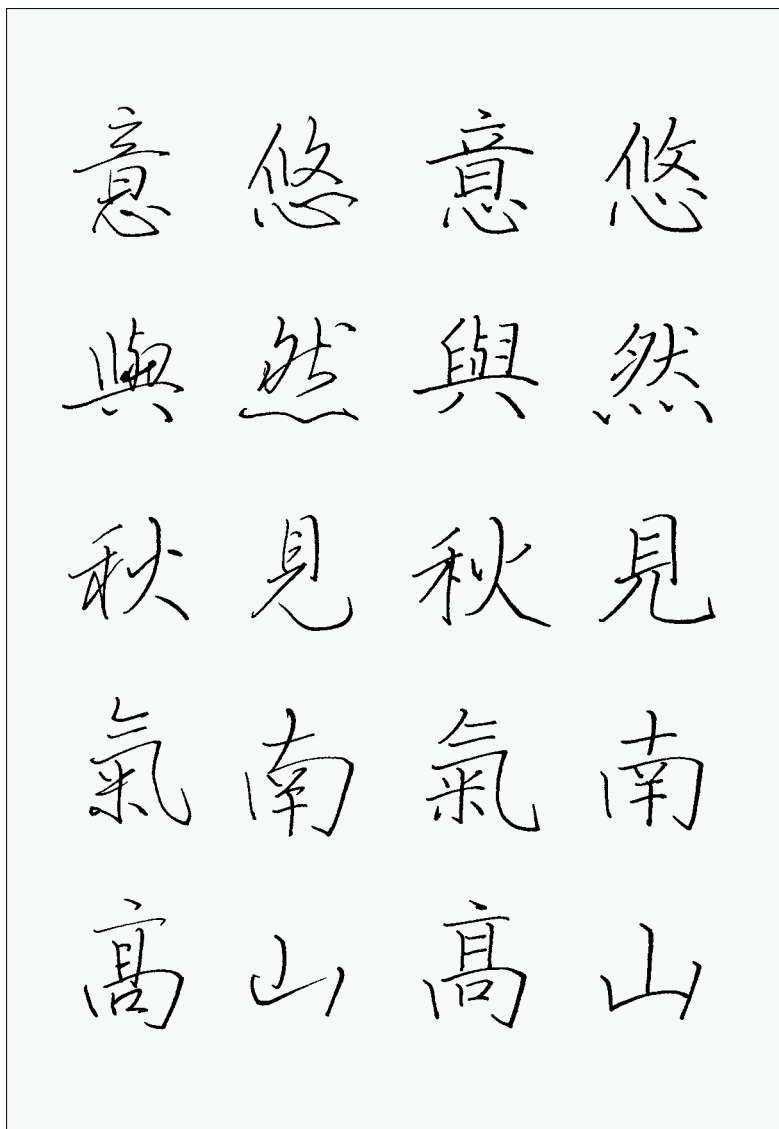 悠然見南山
意與秋氣髙
悠然見南山
意與秋氣髙